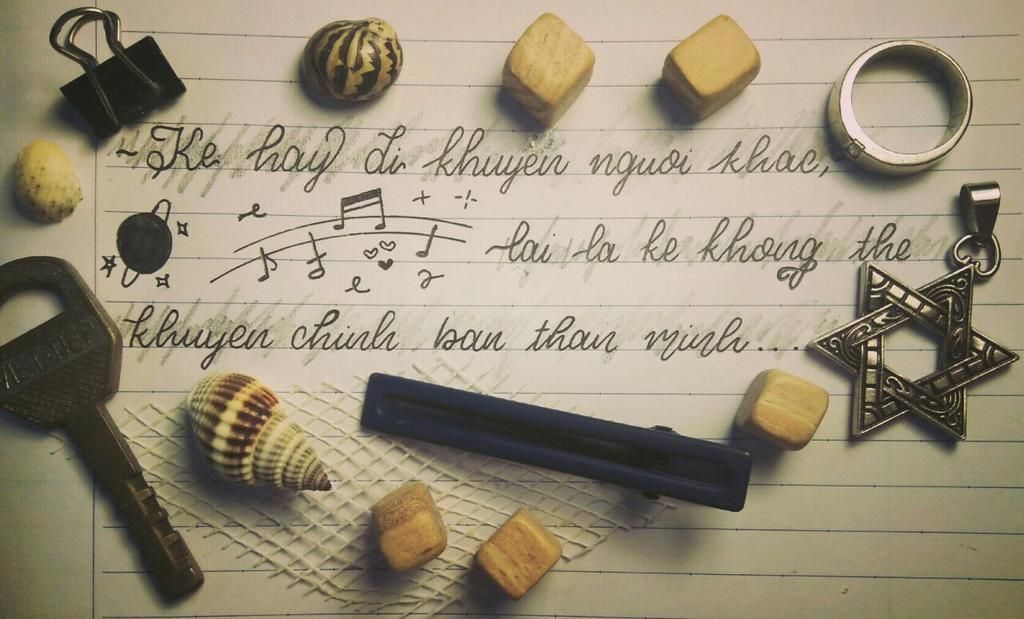 - Ke hay di khuyen nguoi khac,
lai la ke khong the
khuyen chinh ban than minh....